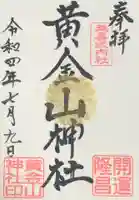 奉拝
延喜式内社
黄金山神社
開運
隆昌
令和四年七月九日
黄金山
神社印